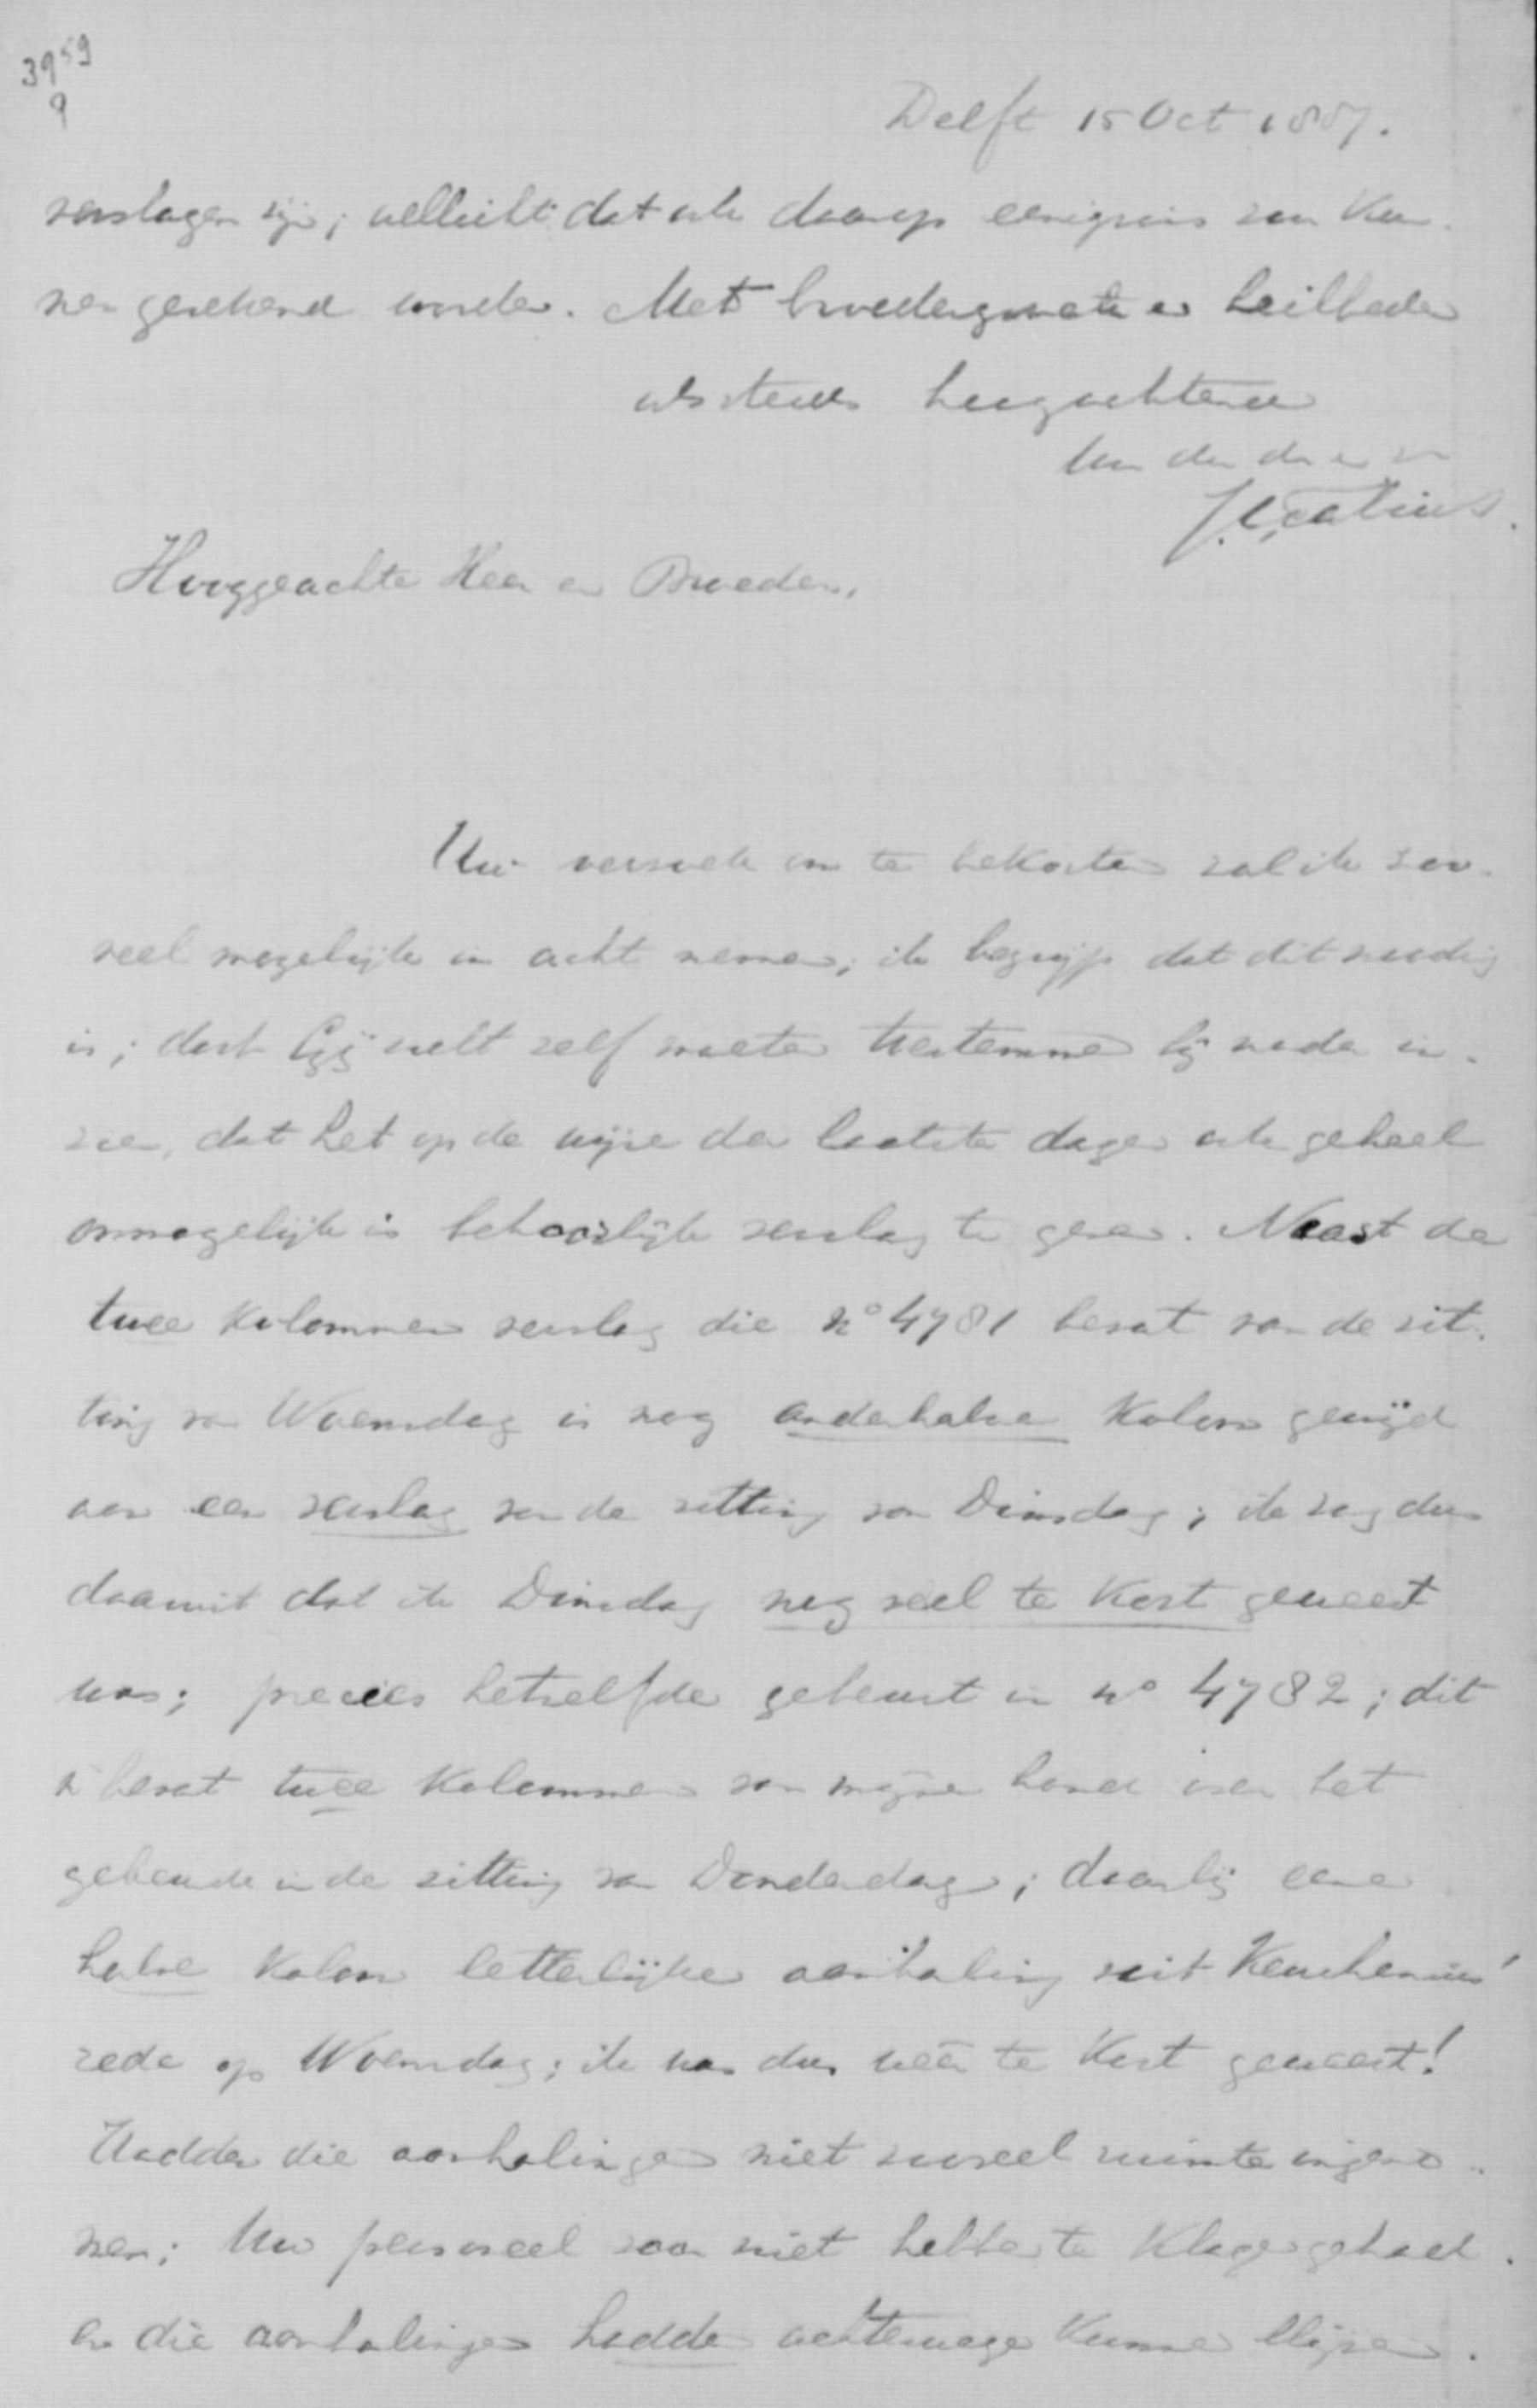 3959
9
Delft 15 Oct 1887.
verslagen zijn; wellicht dat ook daarop eenigzins zou kun-
nen gerekend worden. Met broedergroete en heilbede
als steeds hoogachtend
Uw dw dr en br
J.C. Fabius.
Hooggeachte Heer en Broeder,
Uw verzoek om te bekorten zal ik zoo-
veel mogelijk in acht nemen; ik begrijp dat dit noodig
is; doch Gij zult zelf moeten toestemmen bij nader in-
zien, dat het op de wijze der laatste dagen ook geheel
onmogelijk is behoorlijk verslag te geven. Naast de
twee kolommen verslag die no 4781 bevat van de zit-
ting van Woensdag is nog anderhalve kolom gewijd
aan een verslag van de zitting van Dinsdag; ik zag dus
daaruit dat ik Dinsdag nog veel te kort geweest
was; precies hetzelfde gebeurt in no 4782; dit
bevat twee kolommen van mijne hand over het
gebeurde in de zitting van Donderdag; daarbij eene
halve kolom letterlijke aanhaling uit Keuchenius'
rede op Woensdag; ik was dus wéér te kort geweest!
Hadden die aanhalingen niet zooveel ruimte ingeno-
men; Uw personeel zou niet hebben te klagen gehad.
En die aanhalingen hadden achterwege kunnen blijven.